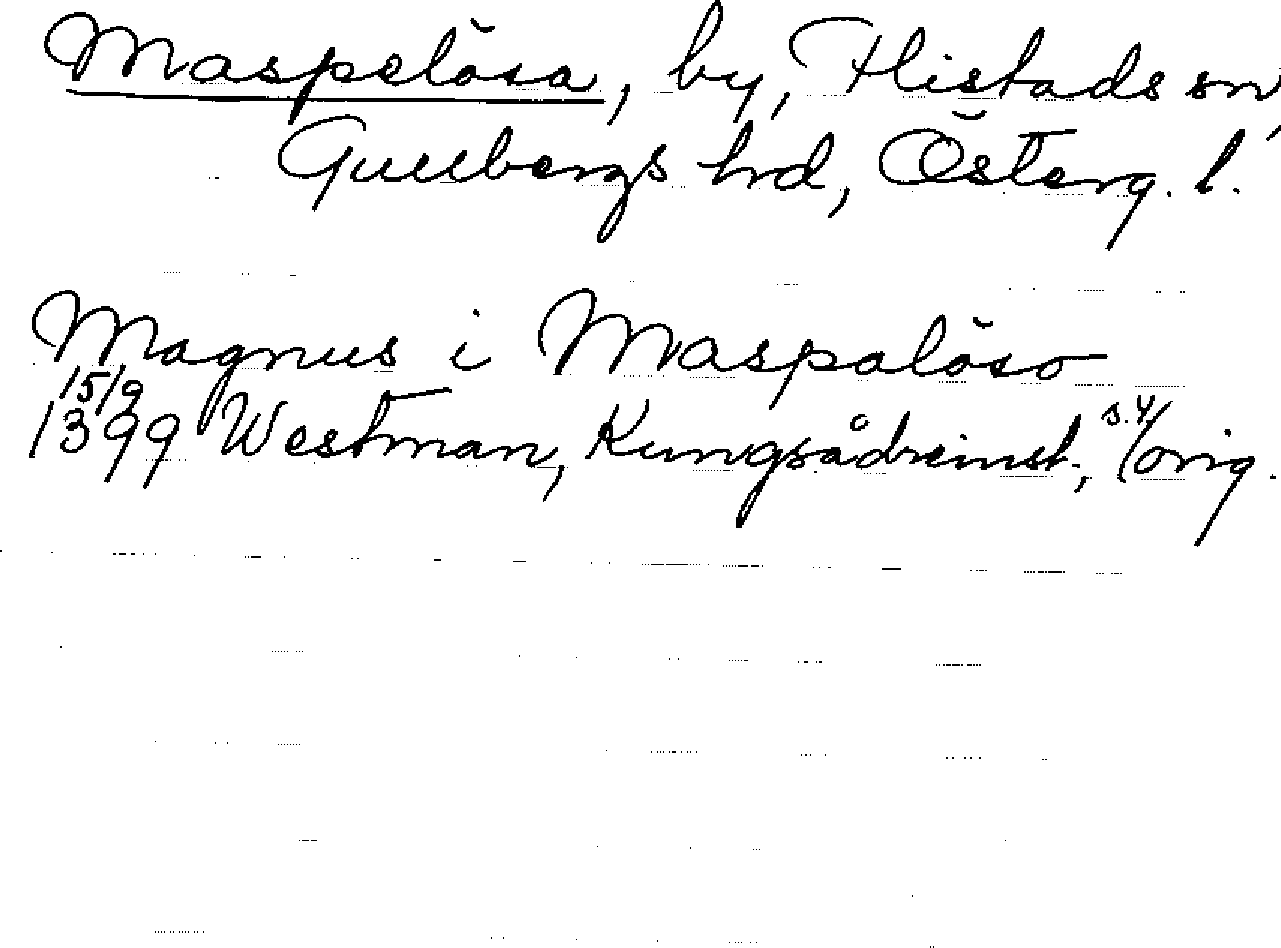 Maspelösa, by, Flistads sn,
Gullbergs hrd, Österg. l.
Magnus i Maspalöso
15/9
1399 Westman, Kungsådreinst., s.4/orig.